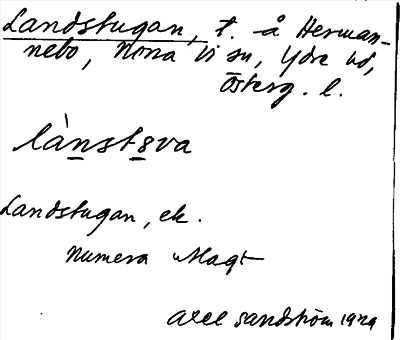 Landstugan, t. å Herman-
nebo, Norra Vi sn, Ydre hd,
Österg. l.
lànstava
Landstugan, ek.
numera utlagt
Axel Sandström 1929